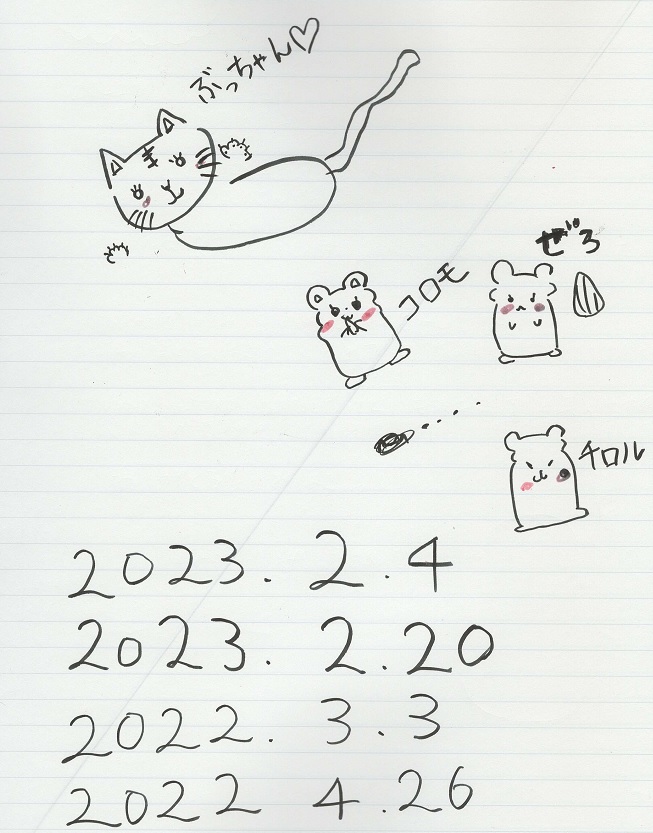 ぶっちゃん♡
ぜろ
コロモ
チロル
2023. 2.4
2023. 2.20
2022. 3.3
2022 4.26